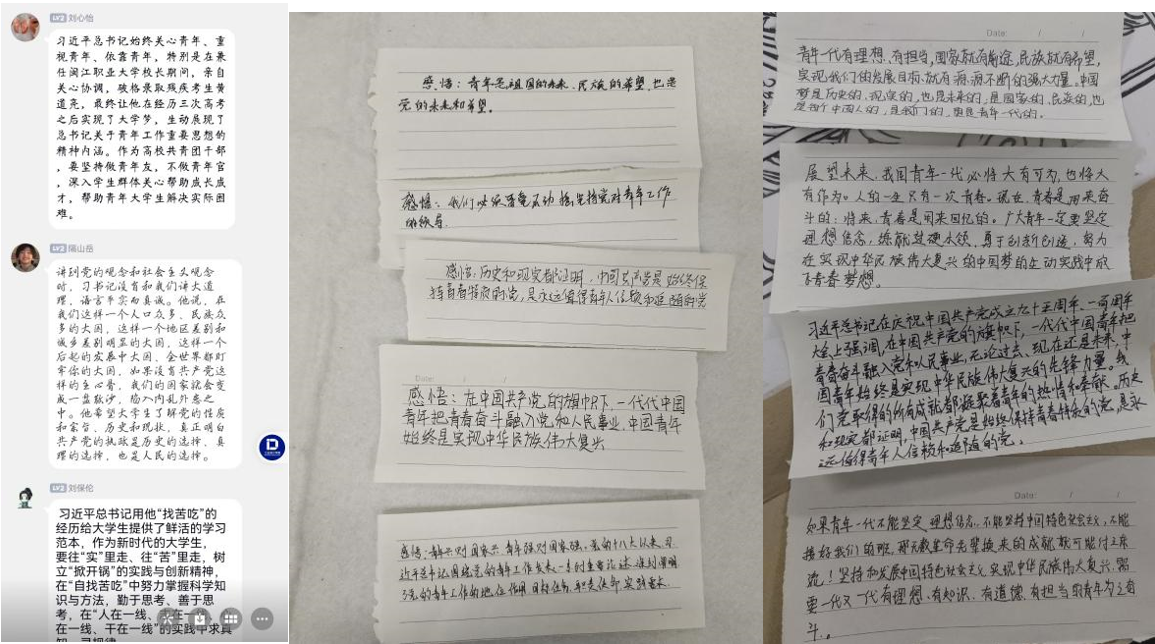 刘心怡
习近平总书记始终关心青年、重
视青年、依靠青年，特别是在兼
任闽江职业大学校长期间，亲自
关心协调，破格录取残疾考生黄
道亮，最终让他在经历三次高考
之后实现了大学梦，生动展现了
总书记关于青年工作重要思想的
精神内涵。作为高校共青团干部
，要坚持做青年友，不做青年官
，深入学生群体关心帮助成长成
才，帮助青年大学生解决实际困
难。
隔山岳
讲到党的观念和社会主义观念
时，习书记没有和我们讲大道
理，语言平实而真诚。他说，在
我们这样一个人口众多、民族众
多的大国，这样一个地区差别和
城乡差别明显的大国，这样一个
后起的发展中大国，全世界都盯
牢你的大国，如果没有共产党这
样的主心骨，我们的国家就会变
成一盘散沙，陷入内乱外患之
中。他希望大学生了解党的性质
和宗旨、历史和现状，真正明白
共产党的执政是历史的选择，真
理的选择，也是人民的选择。
刘保伦
习近平总书记用他“找苦吃”的
经历给大学生提供了鲜活的学习
范本，作为新时代的大学生，
要往“实”里走、往“苦”里走，树
立“掀开锅”的实践与创新精神，
在“自找苦吃”中努力掌握科学知
识与方法，勤于思考、善于思
考，在“人在一线、
在一线、干在一线”的实践中求真
感悟：青年是祖国的未来、民族的希望，也是
党的未来和希望。
感悟：我们必须毫不动摇坚持党对青年工作
的领导
感悟：历史和现实都证明，中国共产党是始终保
持青春特质的党，是永远值得青年人信赖和追随的党
Date: / /
感悟：在中国共产党的旗帜下，一代代中国
青年把青春奋斗融入党和人民事业，中国青年
始终是实现中华民族伟大复兴
感悟：青年兴则国家兴，青年强则国家强，党的十八大以来，习
近平总书记围绕党的青年工作发表一系列重要论述，深刻阐明
了党的青年工作的地位作用、目标任务、职责使命、实践要求
Date: / /
青年一代有理想、有担当，国家就有前途，民族就有希望，
实现我们的发展目标就有源源不断的强大力量。中国
梦是历史的、现实的，也是未来的；是国家的、民族的，也
是每个中国人的；是我们的，更是青年一代的。
展望未来，我国青年一代必将大有可为，也将大
有作为。人的一生只有一次青春。现在，青春是用来奋
斗的；将来，青春是用来回忆的。广大青年一定要坚定
理想信念，练就过硬本领，勇于创新创造，努力
在实现中华民族伟大复兴的中国梦的生动实践中放
飞青春梦想。
习近平总书记在庆祝中国共产党成立九十五周年、一百周年
大会上强调，在中国共产党的旗帜下，一代代中国青年把
青春奋斗融入党和人民事业，无论过去、现在还是未来，中
国青年始终是实现中华民族伟大复兴的先锋力量。我
们党取得的所有成就都凝聚着青年的热情和奉献。历史
和现实都证明，中国共产党是始终保持青春特质的党，是永
远值得青年人信赖和追随的党。
Date: / /
如果青年一代不能坚定理想信念，不能坚持中国特色社会主义，不能
接好我们的班，那无数革命先辈换来的成就就可能付之东
流！坚持和发展中国特色社会主义，实现中华民族伟大复兴，需
要一代又一代有理想、有知识、有道德、有担当的青年为之奋
斗。